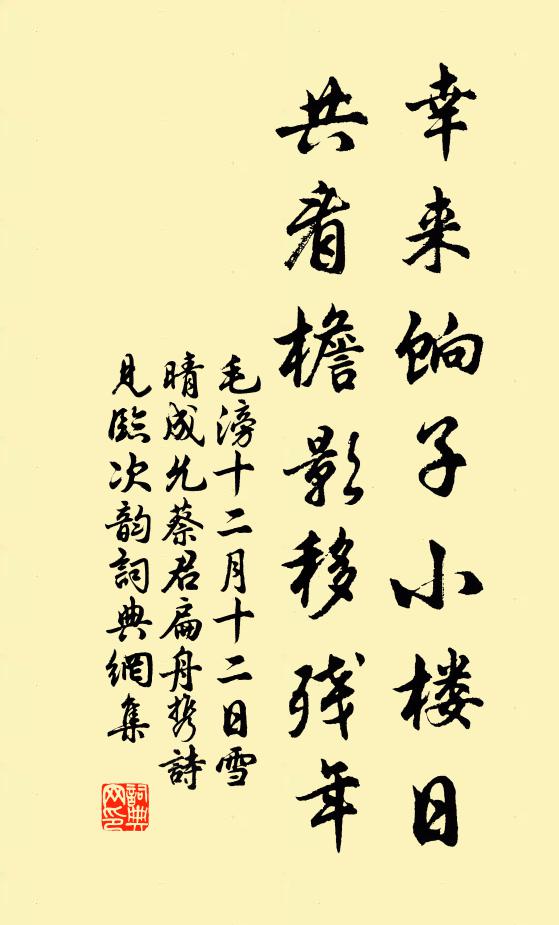 幸来饷子小楼日
共看檐影移残年
毛滂十二月十二日雪
晴成允蔡君扁舟携詩
見臨次韵詞典網集
詞典网印